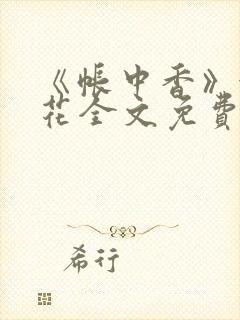 《帐中香》
花全文免費
希行